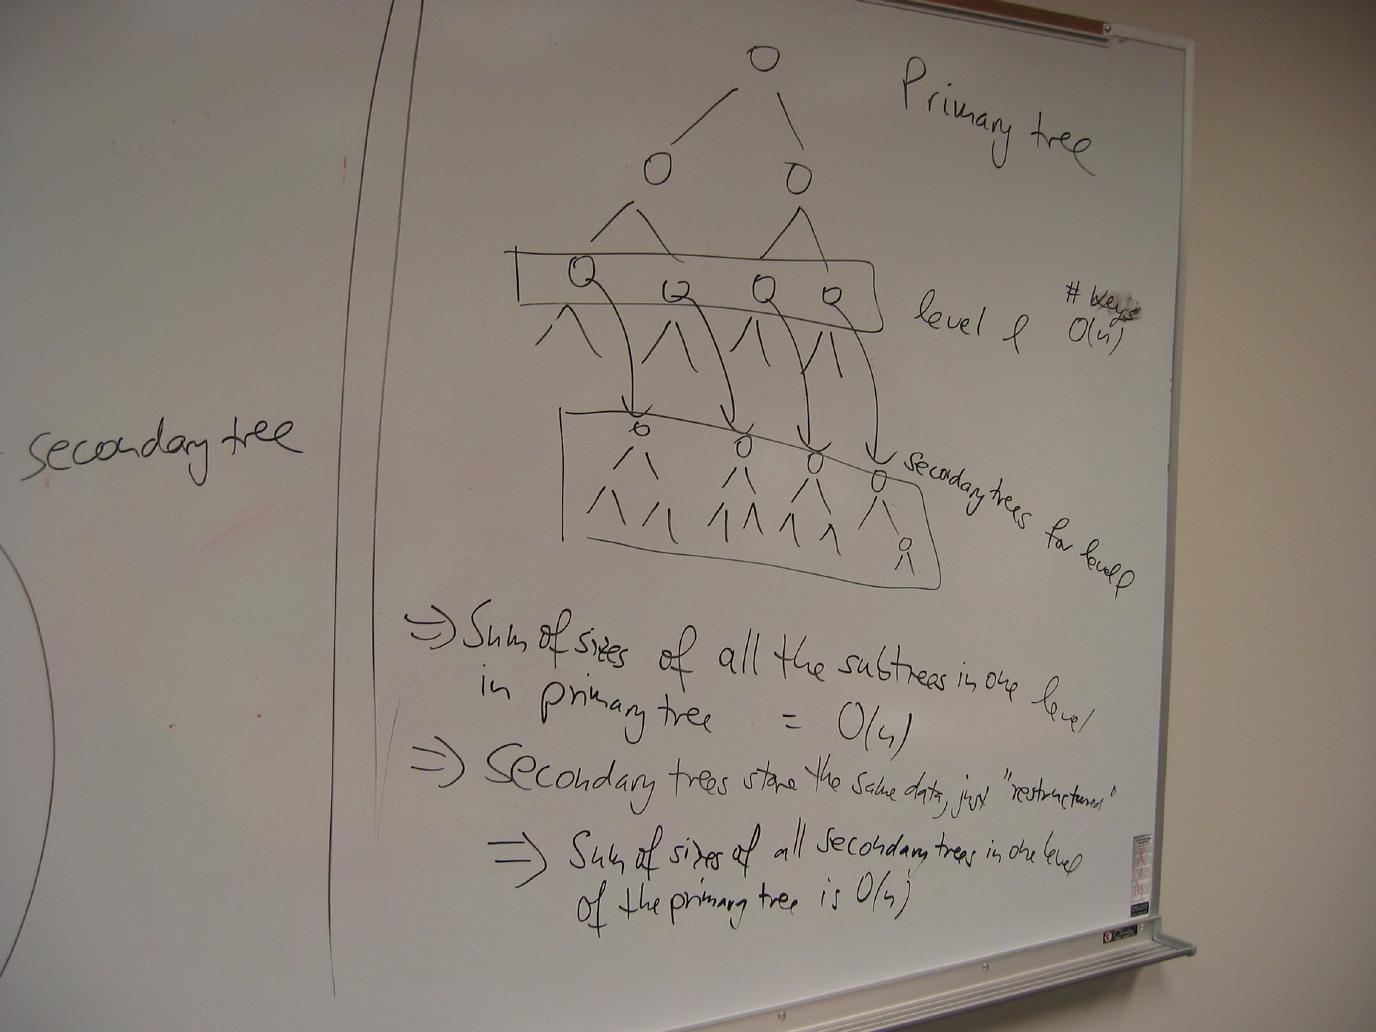 Primary tree
level l
# keys
O(n)
secondary tree
secondary trees for level l
=> Sum of sizes of all the subtrees in one level
in primary tree = O(n)
=> Secondary trees store the same data, just "restructured"
=> Sum of sizes of all secondary trees in one level
of the primary tree is O(n)